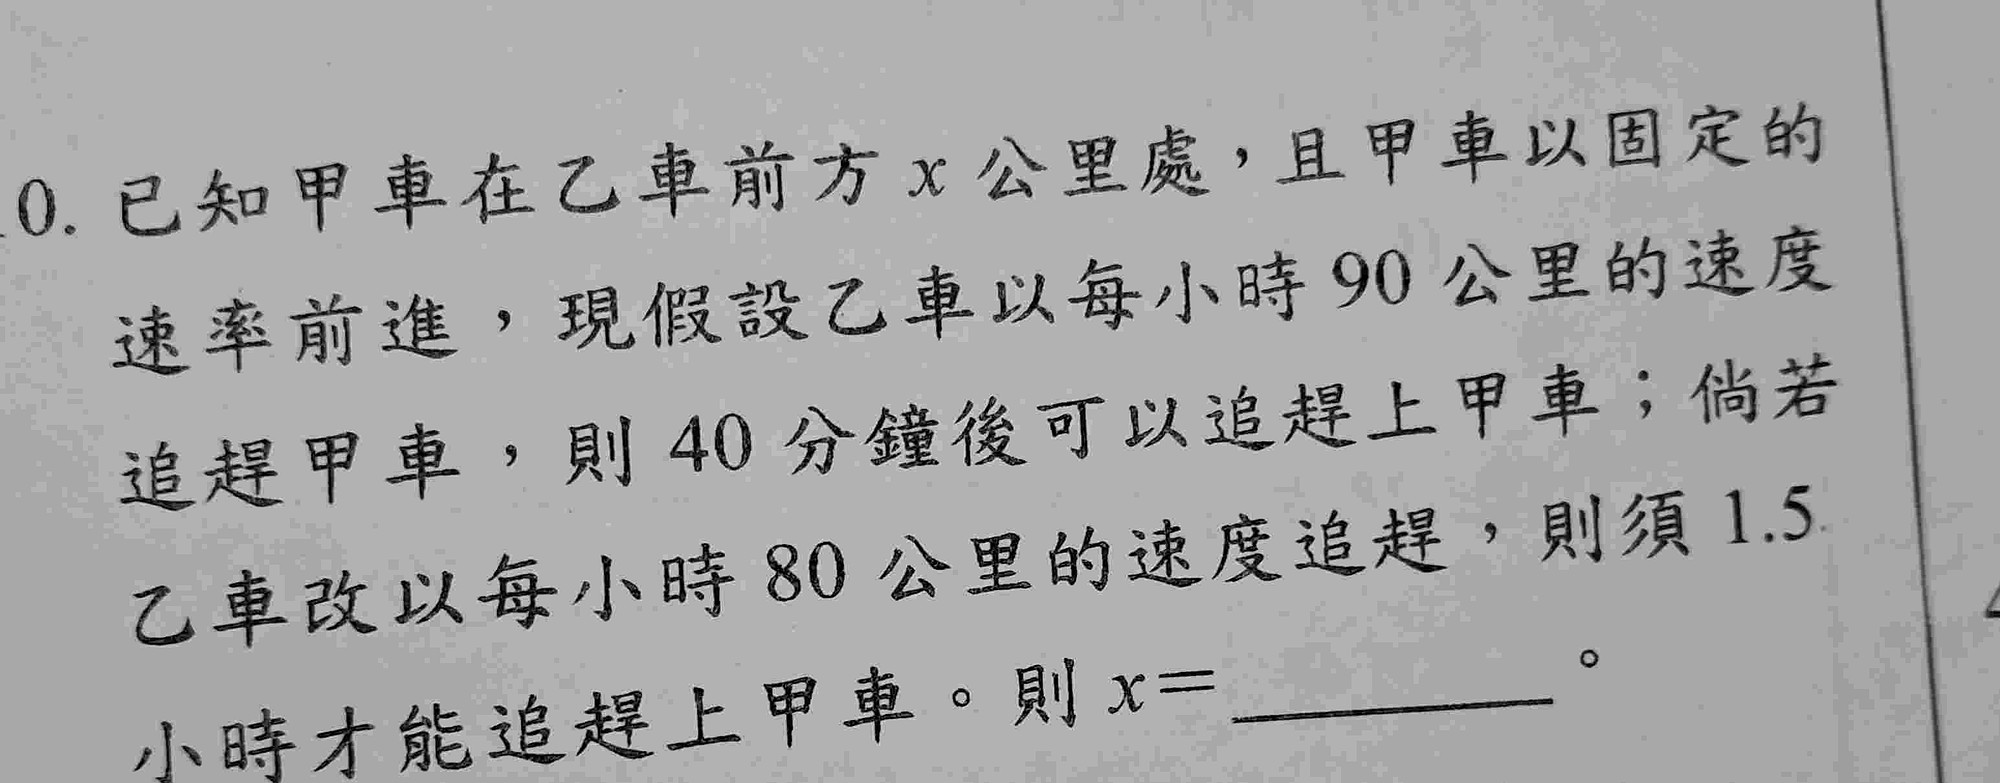 0. 已知甲車在乙車前方 x 公里處，且甲車以固定的
速率前進，現假設乙車以每小時 90 公里的速度
追趕甲車，則 40 分鐘後可以追趕上甲車；倘若
乙車改以每小時 80 公里的速度追趕，則須 1.5
小時才能追趕上甲車。則 x＝________。